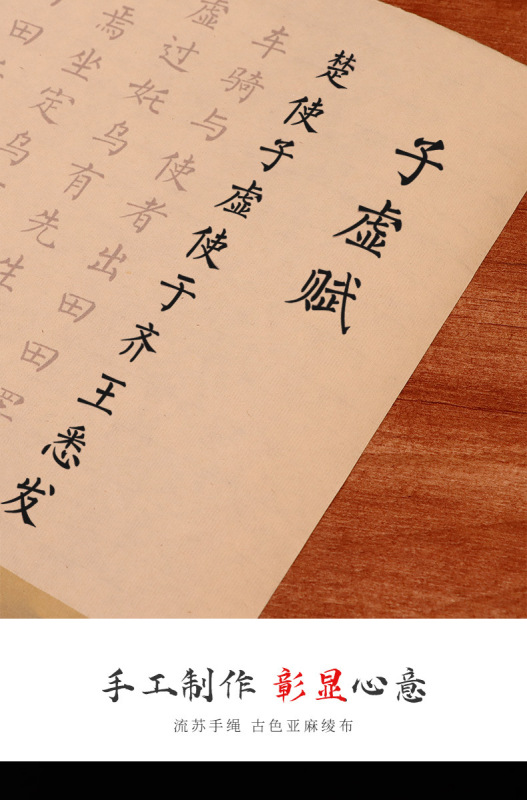 子虚赋
楚使子虚使于齐王悉发
车骑与使者出田田罢
虚过姹乌有先生
焉坐定乌
田
手工制作 彰显心意
流苏手绳 古色亚麻绫布